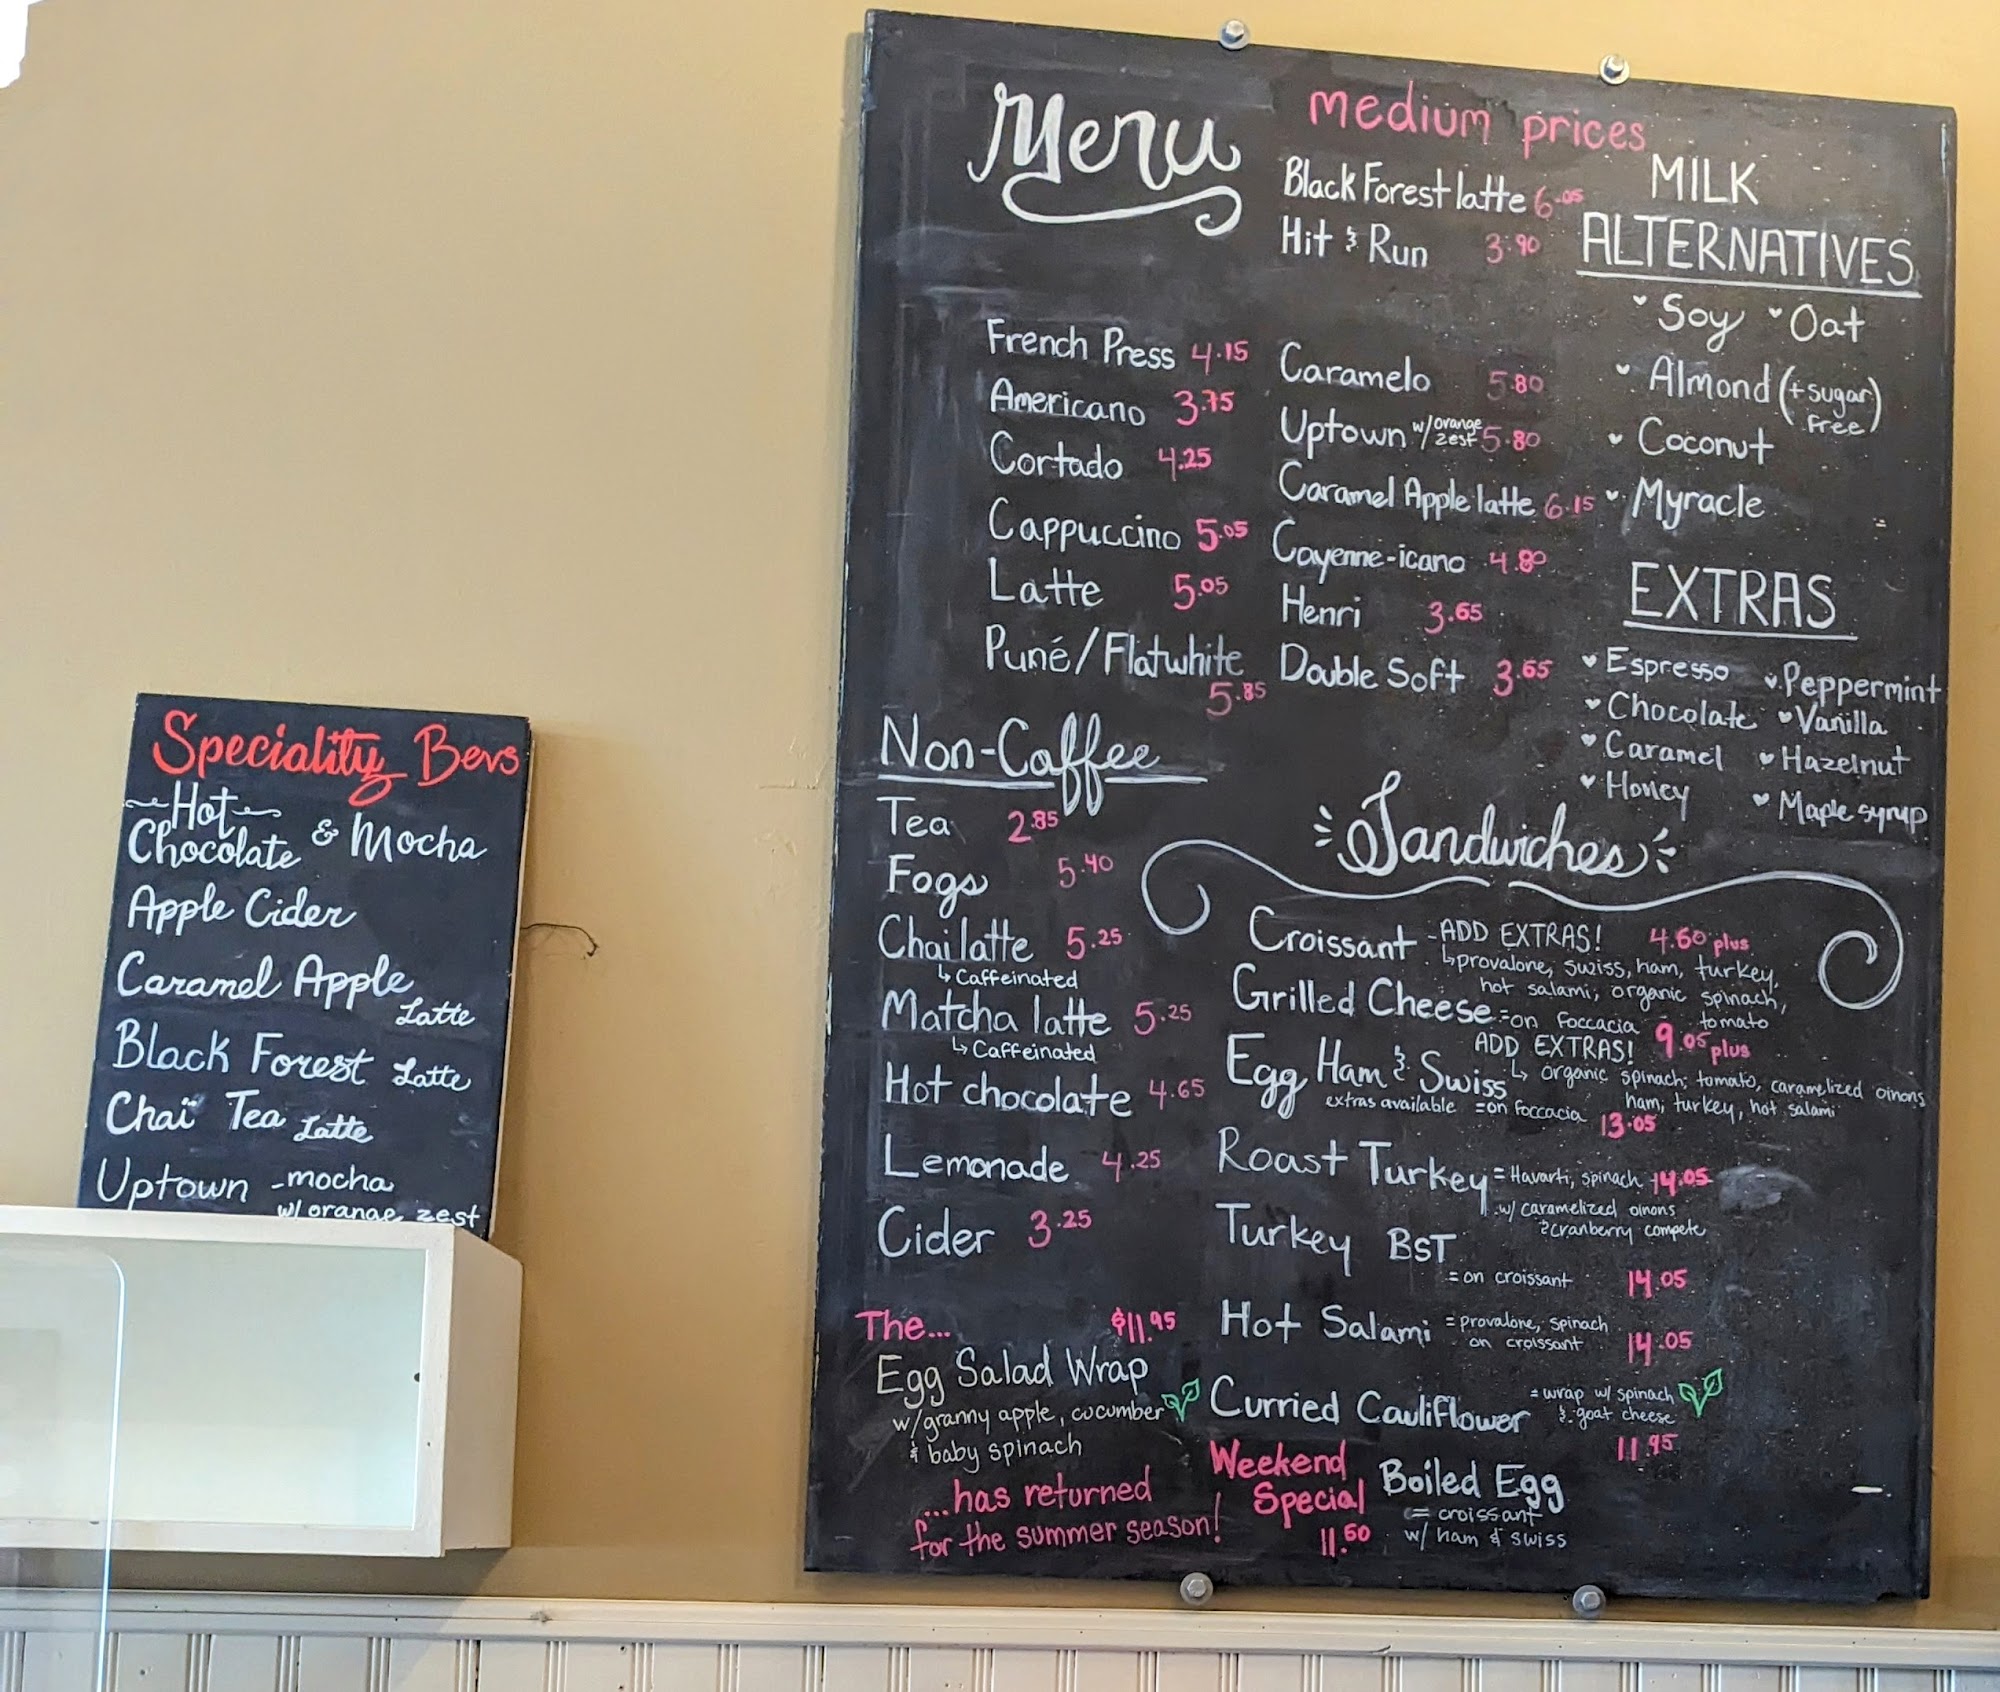 Speciality Bevs
Hot
Chocolate & Mocha
Apple Cider
Caramel Apple
Latte
Black Forest Latte
Chaï Tea Latte
Uptown - mocha
w/ orange zest
Menu
medium prices
Black Forest latte 6.05
Hit & Run 3.90
French Press 4.15
Americano 3.75
Cortado 4.25
Cappuccino 5.05
Latte 5.05
Puné/Flatwhite
5.85
Caramelo 5.80
Uptown w/ orange zest 5.80
Caramel Apple latte 6.15
Cayenne-icano 4.80
Henri 3.65
Double Soft 3.65
MILK
ALTERNATIVES
Soy Oat
Almond (+ sugar free)
Coconut
Myracle
EXTRAS
Espresso Peppermint
Chocolate Vanilla
Caramel Hazelnut
Honey Maple syrup
Non-Caffee
Tea 2.85
Fogs 5.40
Chai latte 5.25
↳ Caffeinated
Matcha latte 5.25
↳ Caffeinated
Hot chocolate 4.65
Lemonade 4.25
Cider 3.25
The... $11.95
Egg Salad Wrap
w/granny apple, cucumber
& baby spinach
...has returned
for the summer season!
Sandwiches
Croissant - ADD EXTRAS! 4.60 plus
↳ provalone, swiss, ham, turkey,
hot salami, organic spinach,
tomato
Grilled Cheese = on foccacia 9.05 plus
ADD EXTRAS!
↳ organic spinach, tomato, caramelized oinons
ham, turkey, hot salami
Egg Ham & Swiss
extras available = on foccacia 13.05
Roast Turkey = Havarti, spinach 14.05
w/ caramelized oinons
& cranberry compete
Turkey BST
= on croissant 14.05
Hot Salami = provalone, spinach
on croissant 14.05
Curried Cauliflower = wrap w/ spinach
& goat cheese
11.95
Weekend
Special
11.60
Boiled Egg
= croissant
w/ ham & swiss